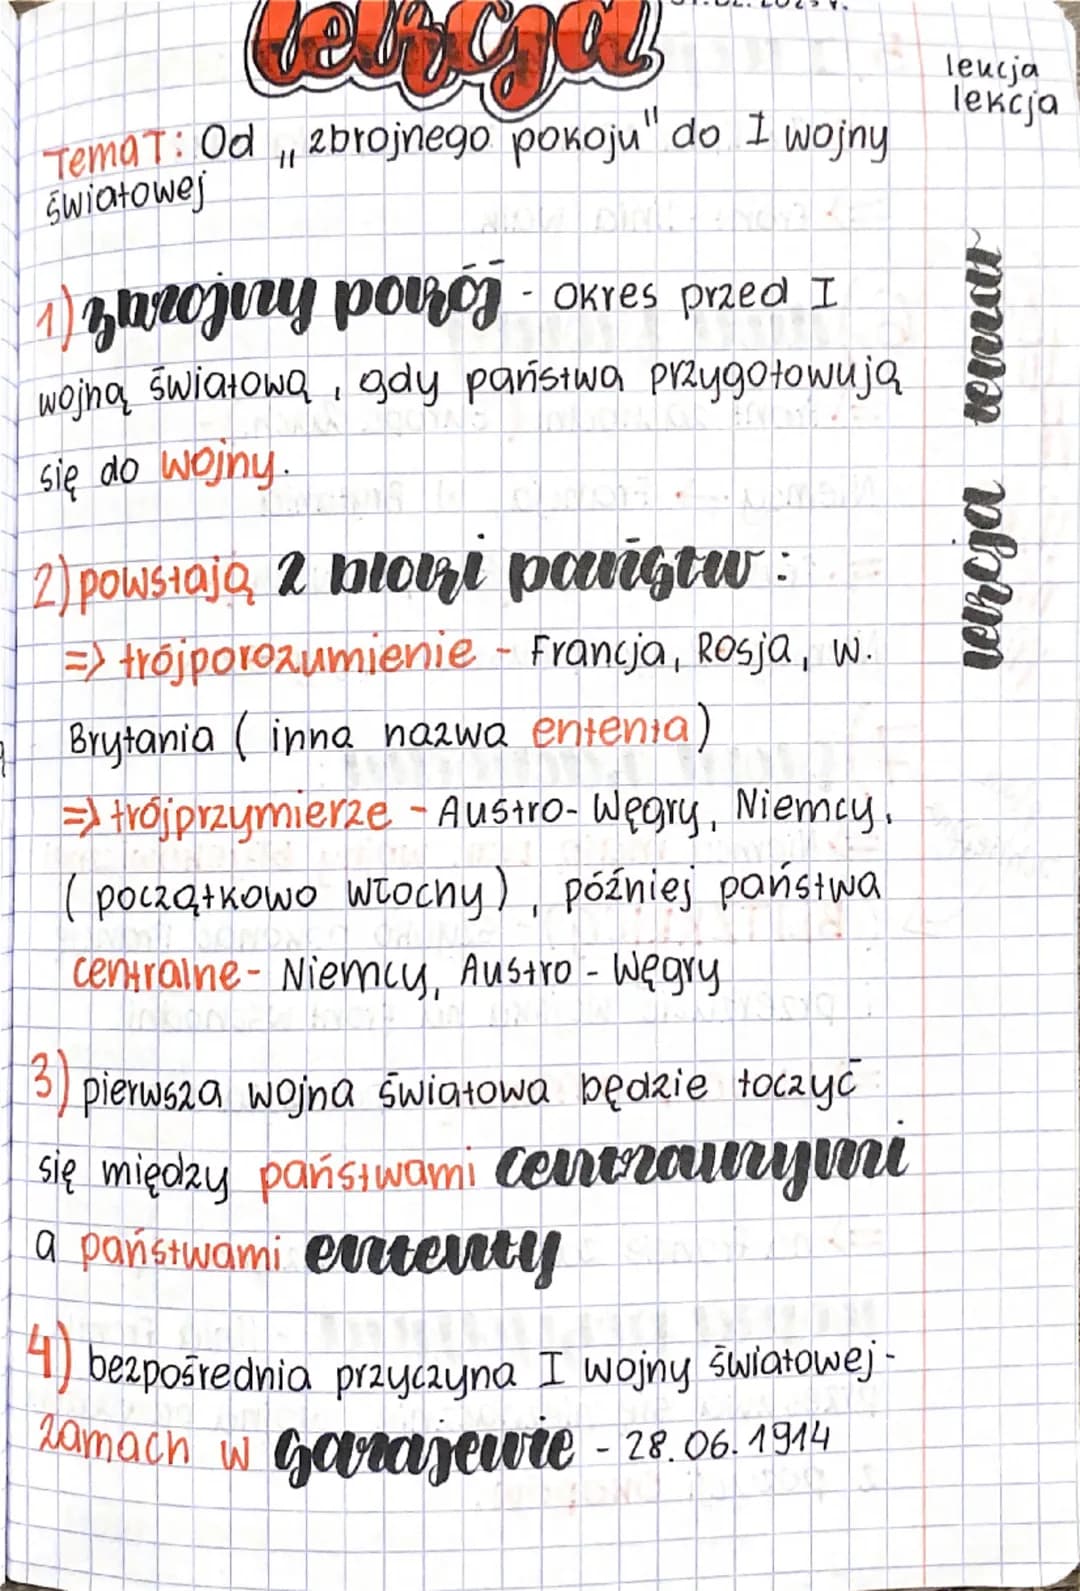 lekcja
lekcja
lekcja
Temat: Od „zbrojnego pokoju" do I wojny
światowej
1) zbrojny pokój - okres przed I
wojną światową, gdy państwa przygotowują
się do wojny.
2) powstają 2 bloki państw:
=> trójporozumienie - Francja, Rosja, W.
Brytania (inna nazwa ententa)
=> trójprzymierze - Austro-Węgry, Niemcy,
(początkowo Włochy), później państwa
centralne - Niemcy, Austro - Węgry
3) pierwsza wojna światowa będzie toczyć
się między państwami centralnymi
a państwami ententy
4) bezpośrednia przyczyna I wojny światowej -
zamach w Sarajewie - 28.06.1914
lekcja temat